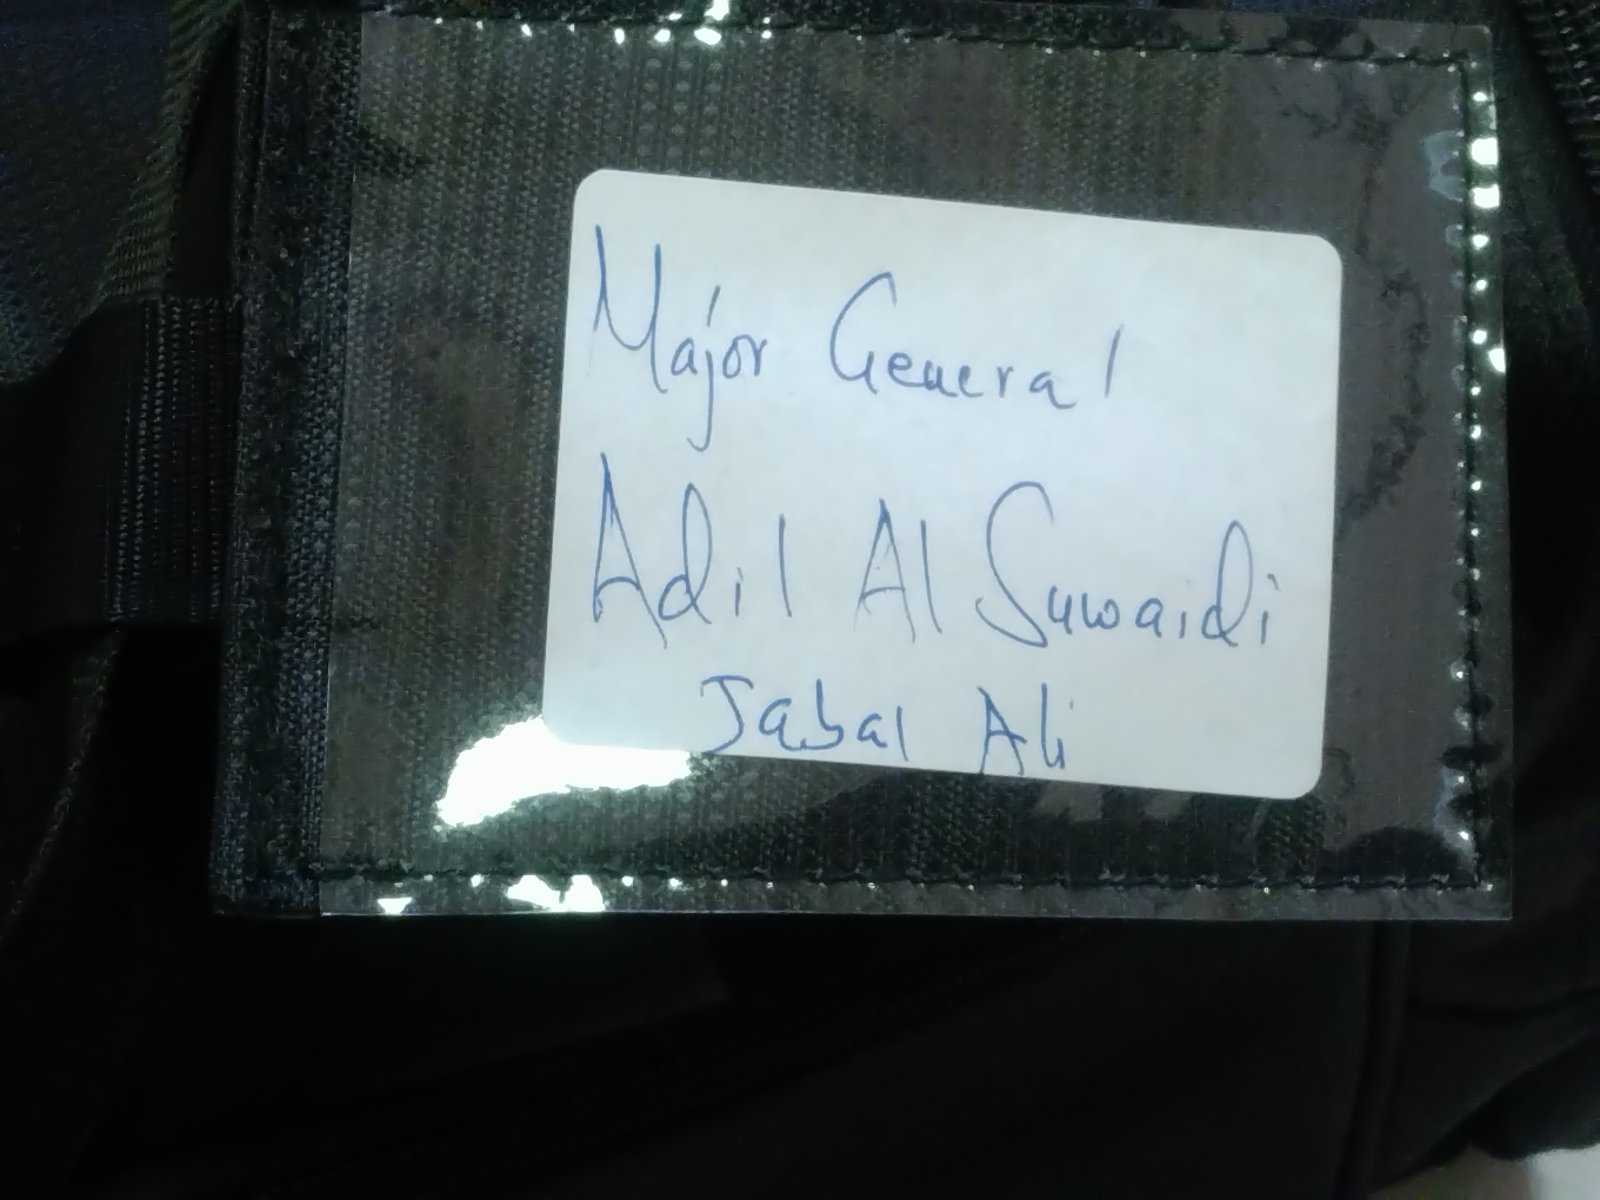 Major General
Adil Al Suwaidi
Jabal Ali